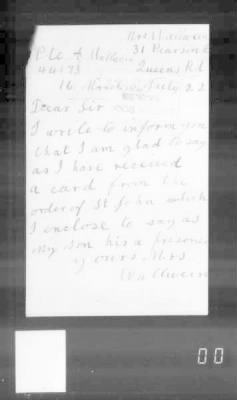 Mrs
Pte A 31 Pearson
44173 Queens Rd
16 July 22
Dear Sir
I write to inform you
that I am glad to say
as I have received
a card from the
order of St John which
I enclose to say as
my son his a prisoner
yours Mrs
00